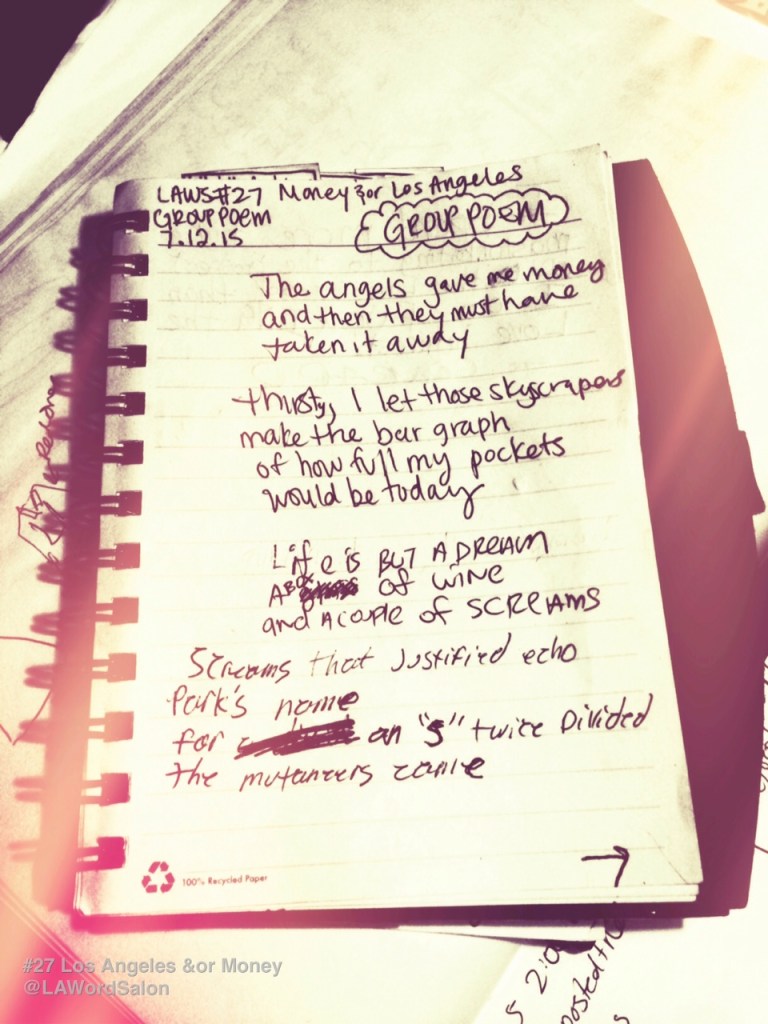 LAWS#27 Money &or Los Angeles
GROUP POEM
7.12.15
GROUP POEM
The angels gave me money
and then they must have
taken it away
thirsty, I let those skyscrapers
make the bar graph
of how full my pockets
would be today
Life is BUT A DREAM
A BOX of WINE
and A couple of SCREAMS
Screams that Justified echo
Park's name
for an "S" twice Divided
the mutaneers came
100% Recycled Paper
#27 Los Angeles &or Money
@LAWordSalon